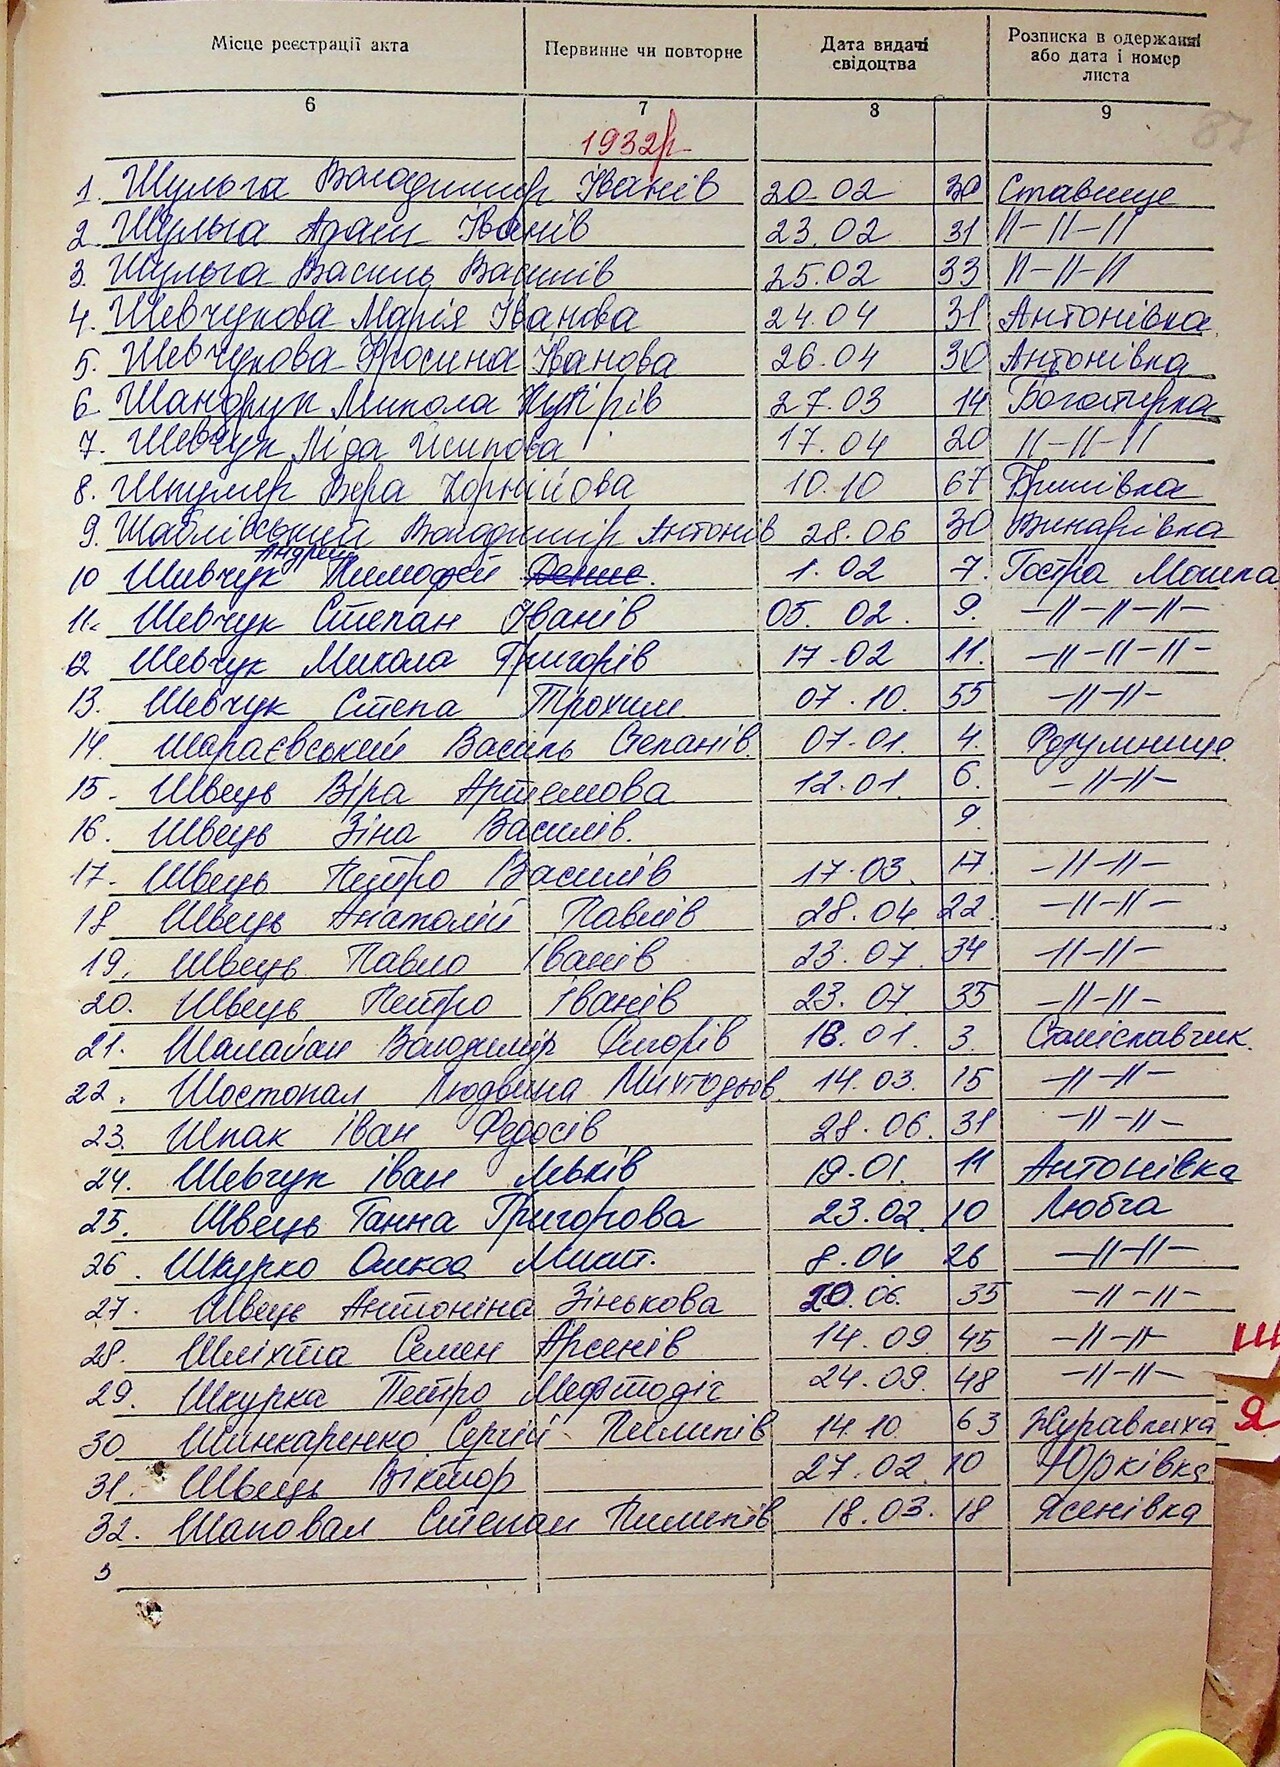 Місце реєстрації акта Первинне чи повторне Дата видачі свідоцтва Розписка в одержанні або дата і номер листа
6 7 8 9
87
1932р
1. Шульга Володимир Іванів 20.02 30 Ставище
2. Шульга Адам Іванів 23.02 31 II-II-II
3. Шульга Василь Василів 25.02 33 II-II-II
4. Шевчукова Марія Іванова 24.04 31 Антонівка
5. Шевчукова Фросина Іванова 26.04 30 Антонівка
6. Шандрук Микола 27.03 14 Богатирка
7. Шевчук Ліда 17.04 20 II-II-II
8. Шкумер Вера Корнійова 10.10 67 Бришівка
9. Шаблівський Володимир Антонів 28.06 30 Винарівка
Андрей
10 Шивчук Тимофей 1.02 7. Гостра Могила
11. Шевчук Степан Іванів 05.02. 9. -II-II-II-
12 Шевчук Микола Григорів 17-02 11. -II-II-II-
13. Шевчук Степа Трохим. 07.10. 55 -II-II-
14. Шараєвський Василь Степанів. 07.01. 4. Розумниця
15. Швець Віра Артемова 12.01. 6. -II-II-
16. Швець Зіна Василів. 9.
17. Швець Петро Василів 17.03. 17. -II-II-
18 Швець Анатолій Павлів 28.04 22. -II-II-
19. Швець Павло Іванів 23.07. 34 -II-II-
20. Швець Петро Іванів 23.07. 35 -II-II-
21. Шалабан Володимір Григорів 18.01. 3. Станіславчик.
22. Шостопал Людвина 14.03. 15 -II-II-
23. Шпак Іван Федосів 28.06. 31 -II-II-
24. Шевчук Іван Львів 19.01. 11 Антонівка
25. Швець Ганна Григорова 23.02. 10 Любча
26. Шкурко Олекса Микит. 8.04 26 -II-II-
27. Швець Антоніна Зінькова 20.06. 35 -II-II-
28. Шліхта Семен Арсенів 14.09. 45 -II-II- Ш
29. Шкурка Петро Мефтодіг 24.09. 48 -II-II-
30 Шинкаренко Сергій Пилипів 14.10. 63 Журавлиха Я
31. Швець Віктор 27.02. 10 Юрківка
32. Шаповал Степан Пилипів 18.03. 18 Ясенівка
3